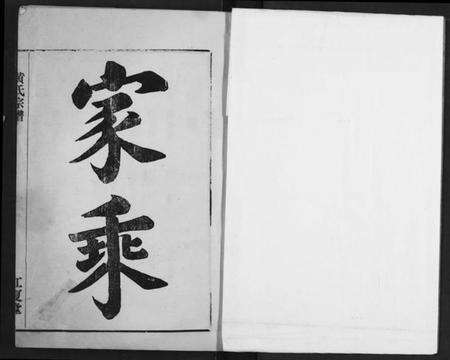 家乘
黄氏宗譜
江夏堂